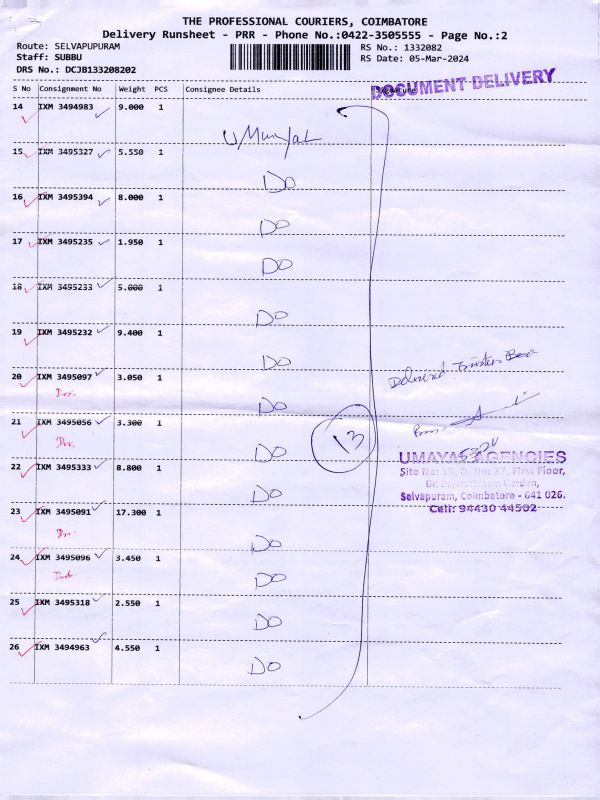 THE PROFESSIONAL COURIERS, COIMBATORE
Delivery Runsheet - PRR - Phone No.:0422-3505555 - Page No.:2
Route: SELVAPUPURAM
RS No.: 1332082
Staff: SUBBU
RS Date: 05-Mar-2024
DRS No.: DCJB133208202
DOCUMENT DELIVERY
S No Consignment No Weight PCS Consignee Details Signature
14 IXM 3494983 9.000 1
15 IXM 3495327 5.550 1
Do
16 IXM 3495394 8.000 1
Do
17 IXM 3495235 1.950 1
Do
18 IXM 3495233 5.000 1
Do
19 IXM 3495232 9.400 1
Do
20 IXM 3495097 3.050 1
Do
Delivered
21 IXM 3495056 3.300 1
Do
13
22 IXM 3495333 8.800 1
Do
UMAYAS AGENCIES
Site No: 15, D. No: 27, First Floor,
Garden,
Selvapuram, Coimbatore - 641 026.
Cell: 94430 44502
23 IXM 3495091 17.300 1
Do
24 IXM 3495096 3.450 1
Do
25 IXM 3495318 2.550 1
Do
26 IXM 3494963 4.550 1
Do